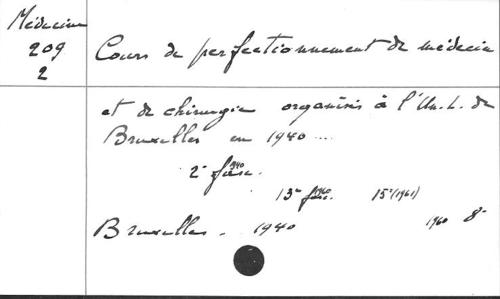 Médecine
209
2
Cours de perfectionnement de médecine
et de chirurgie organisés à l'Un. L. de
Bruxelles en 1940 ...
2e fasc. 1940
13e fasc. 1960 15e (1961)
Bruxelles. 1940 1960 8°